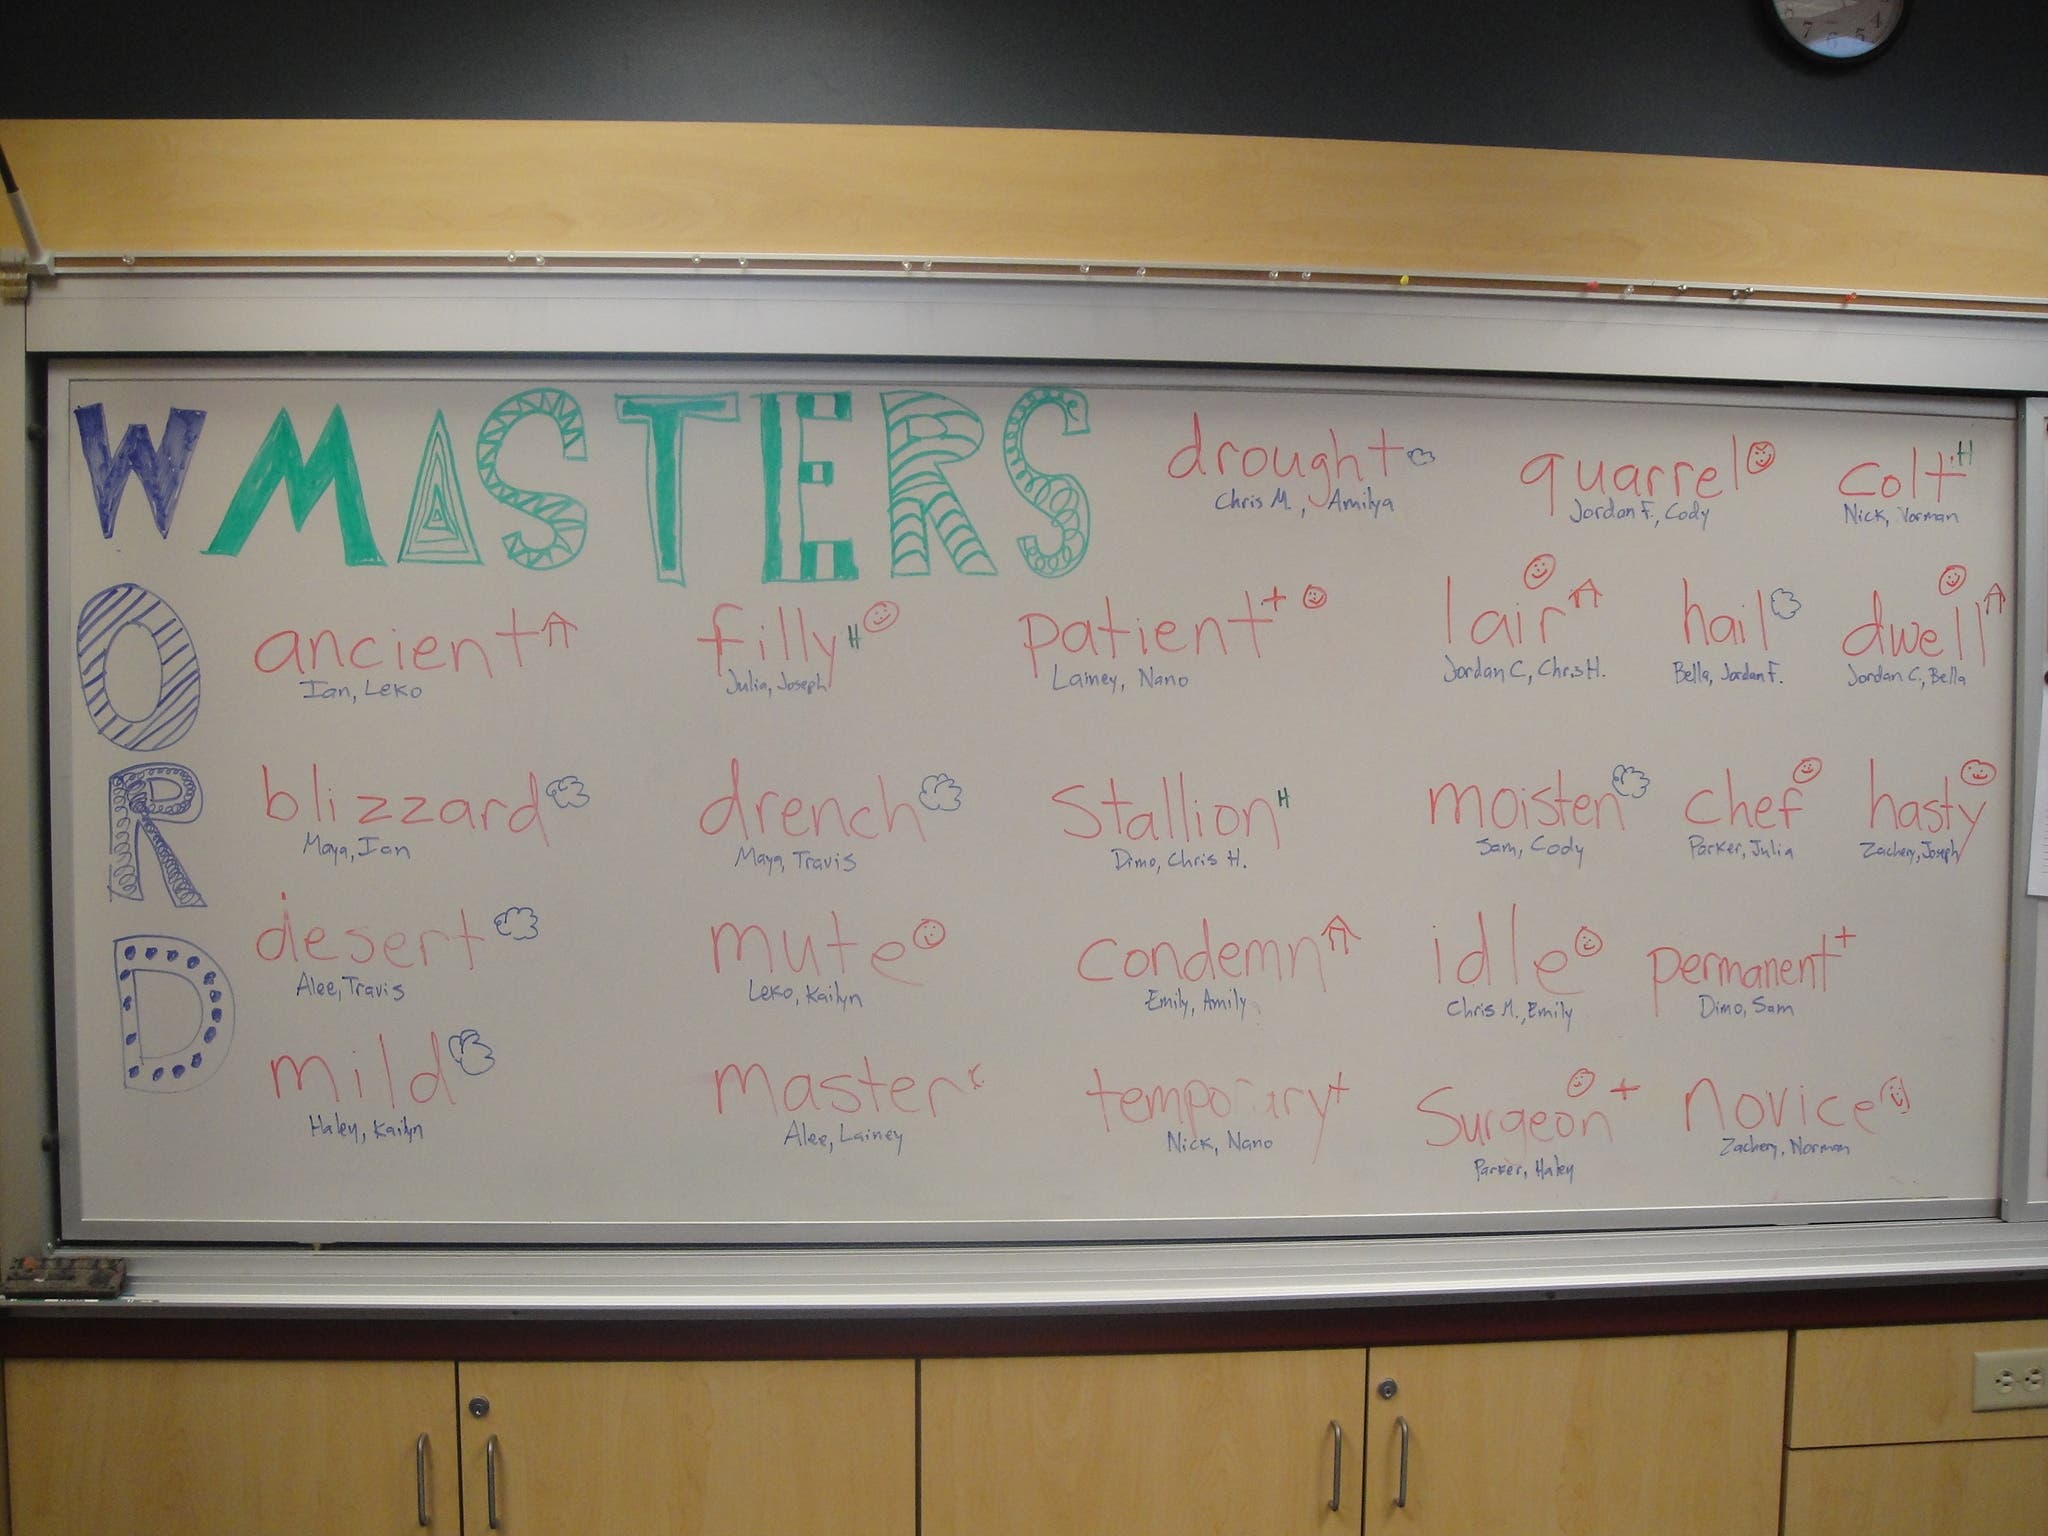 WORD
MASTERS
drought
Chris M., Amilya
quarrel
Jordan F., Cody
colt H
Nick, Norman
ancient
Ian, Leko
filly H
Julia, Joseph
patient +
Lainey, Nano
lair
Jordan C, Chris H.
hail
Bella, Jordan F.
dwell
Jordan C., Bella
blizzard
Maya, Ian
drench
Maya, Travis
Stallion H
Dimo, Chris H.
moisten
Sam, Cody
chef
Parker, Julia
hasty
Zachery, Joseph
desert
Alee, Travis
mute
Leko, Kailyn
condemn
Emily, Amily
idle
Chris M., Emily
permanent +
Dimo, Sam
mild
Haley, Kailyn
master
Alee, Lainey
temporary +
Nick, Nano
Surgeon +
Parker, Haley
novice
Zachery, Norman
8 7 6 5 4